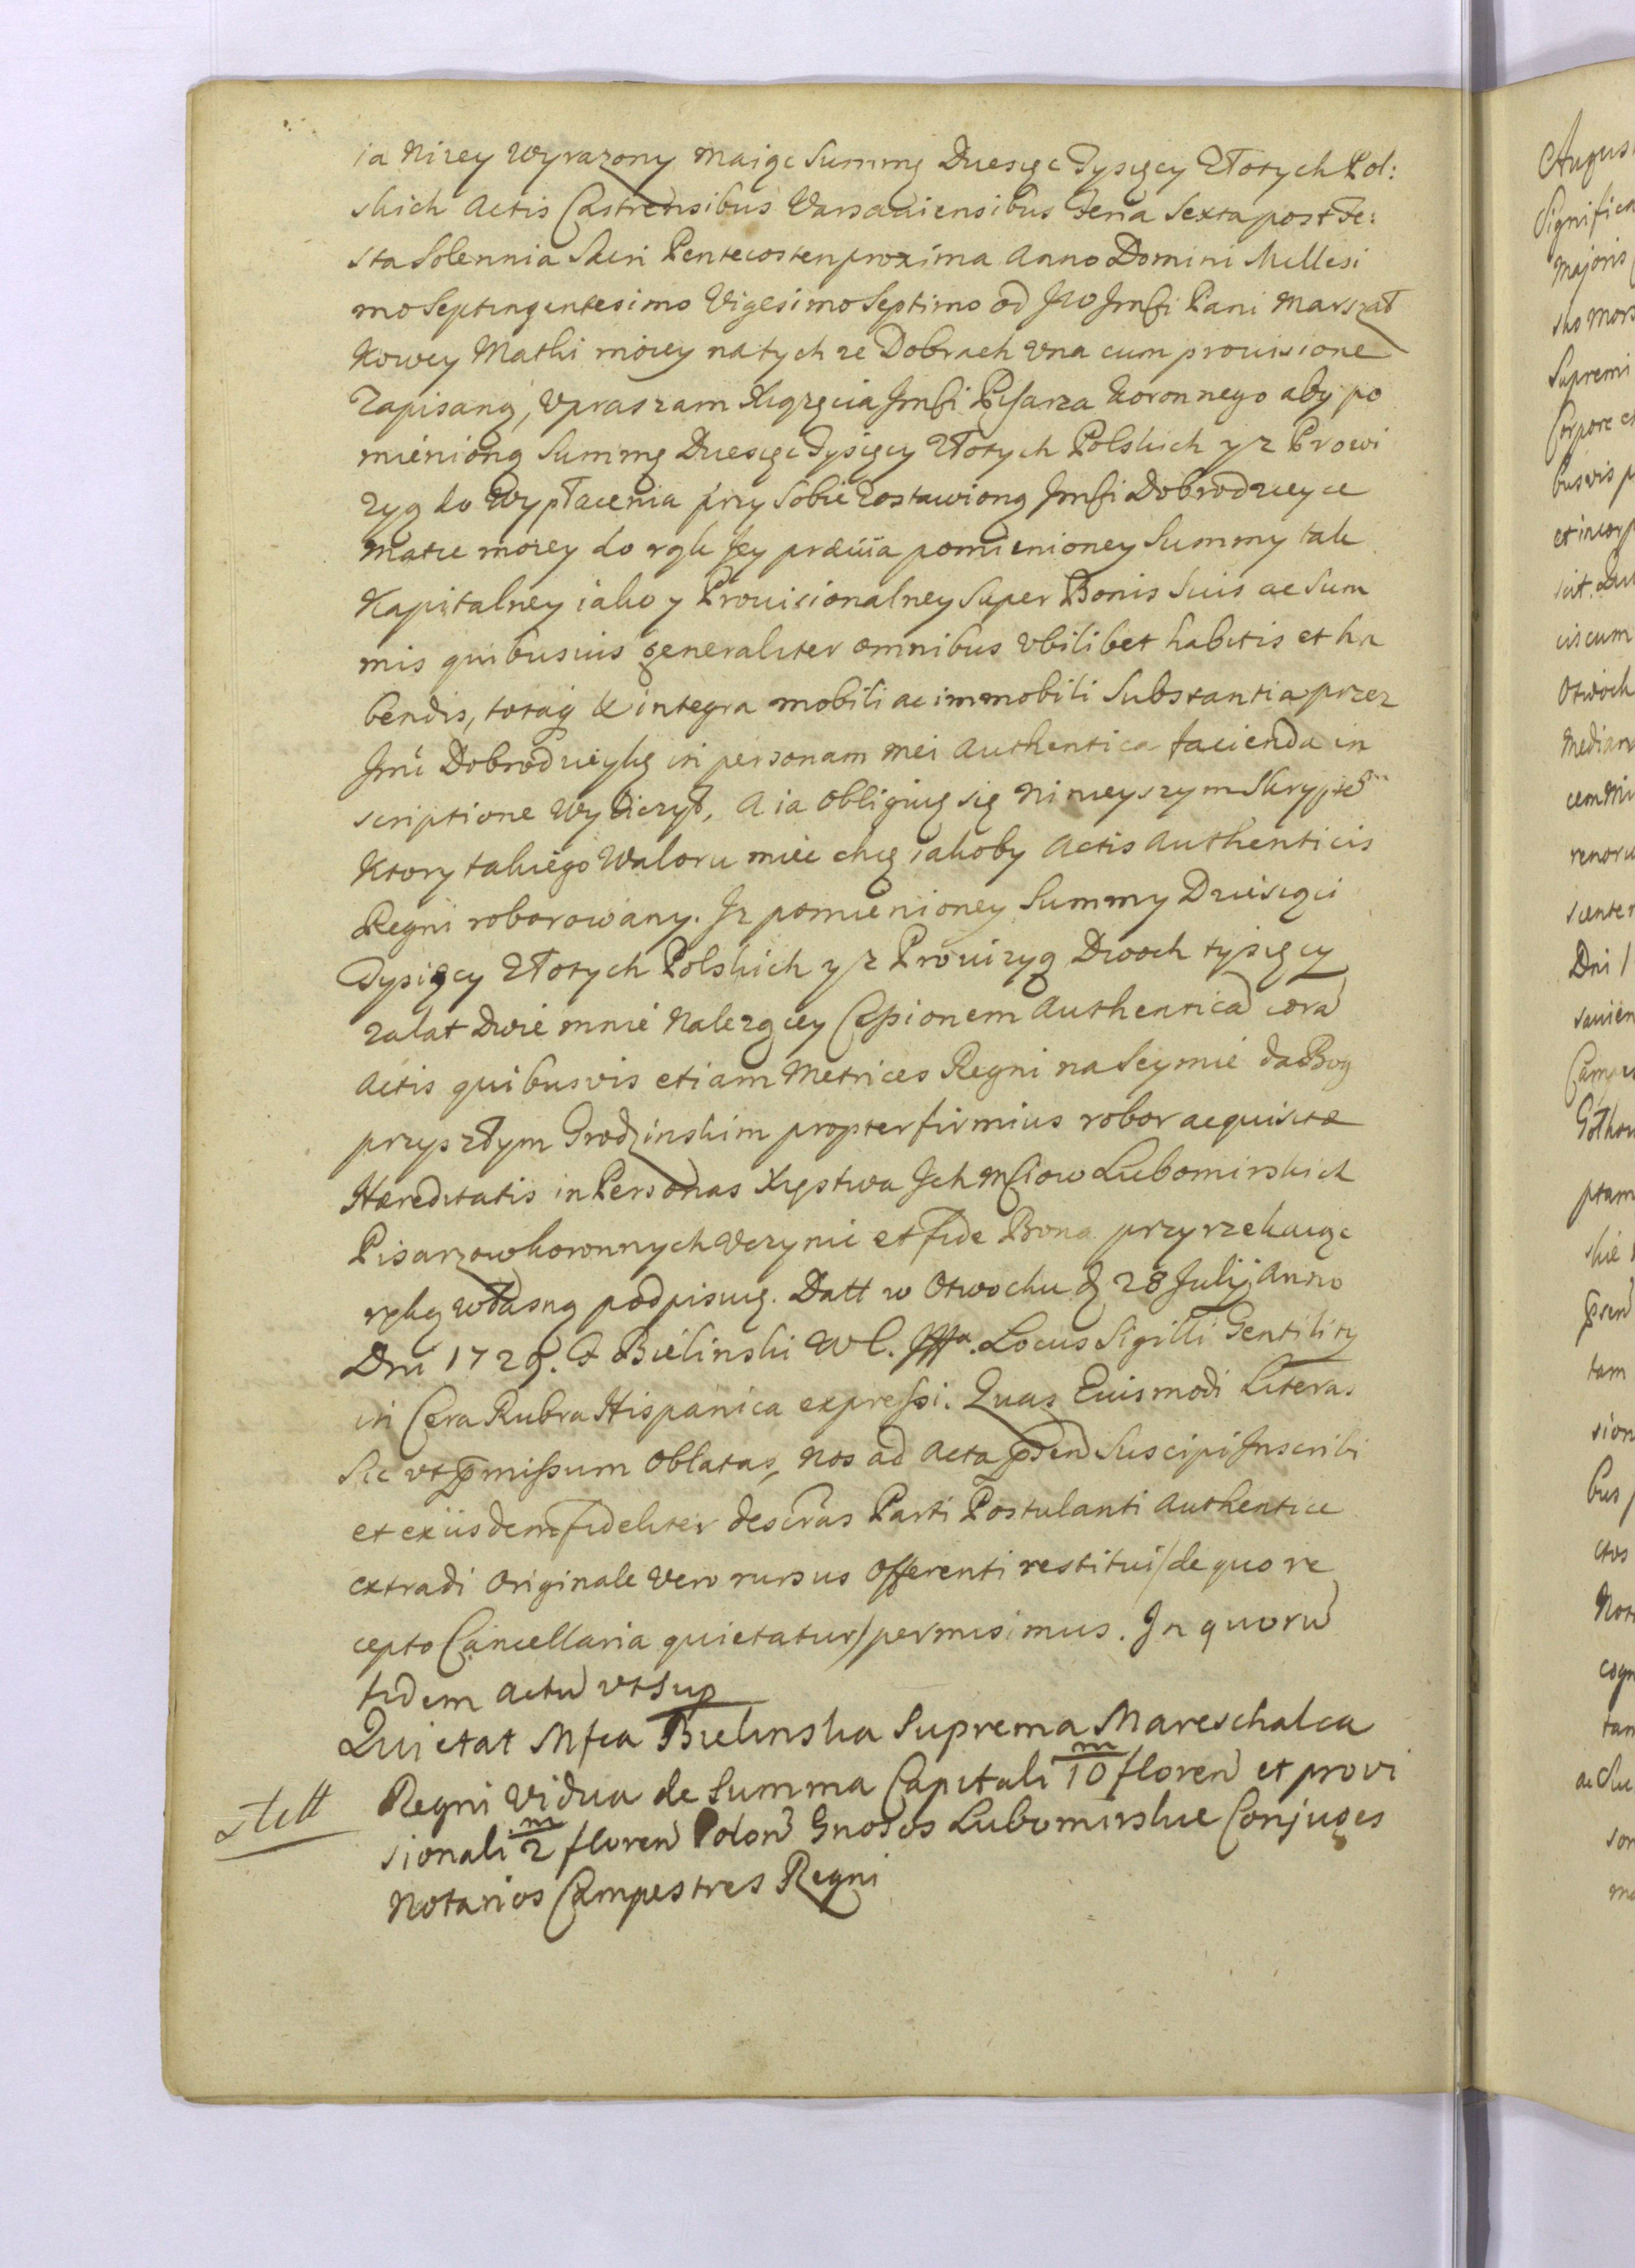 ia niżey wyrażony maiąc Summę Dziesięc Tysięcy Złotych Pol:
skich Actis Castrensibus Varsaviensibus Feria Sexta post Fe:
sta Solennia Sacri Pentecosten proxima Anno Domini Millesi
mo Septingentesimo Vigesimo Septimo od JW Jmści Pani Marszał
kowey Matki moiey na tych ze Dobrach una cum provisione
zapisaną, upraszam Xiązęcia Jmści Pisarza Koronnego aby po
mienioną Summę Dziesięc Tysięcy Złotych Polskich y z Prowi
zyą do wypłacenia przy sobie zostawioną Jmści Dobrodzieyce
Matce moiey do rąk Jey præuia pomienioney Summy tak
Kapitalney iako y Prouisionalney Super Bonis Suis ac Sum
mis quibusuis generaliter omnibus ubilibet habitis et ha
bendis, totaq; & integra mobili ac immobili Substantia przez
Jmć Dobrodzieykę in personam mei Authentica facienda in
scriptione wyliczył, A ia obliguię się ninieyszym Skryptē
ktory takiego Waloru miec chcę iakoby Actis Authenticis
Regni roborowany. Iz pomienioney Summy Dziesięci
Tysięcy Złotych Polskich y z Prouizyą Dwoch tysięcy
za lat dwie mnie należącey Cessionem Authenticã corã
Actis quibusvis etiam Metrices Regni na Seymie da Bog
przyszłym Grodzinskim propter firmius robor acquisitæ
Hæreditatis in Personas Xięstwa Ich Mściow Lubomirskich
Pisarzow koronnych uczynić et fide Bona przyrzekaiąc
ręką własną podpisuię. Datt w Otwocku d 28 Julij Anno
Dni 1729. F Bielinski W C. Locus Sigilli Gentility
in Cera Rubra Hispanica expressi. Quas Euismodi Literas
Sic ut p̄missum oblatas, nos ad Acta p̄sen Suscipi Inscribi
et ex iisdem fideliter descrãs Parti Postulanti Authentice
extradi Originale vero rursus Offerenti restitui /de quo re
cepto Cancellaria quietatur/ permisimus. In quorũ
fidem Actũ ut Sup
Quietat Mfca Bielinska Suprema Mareschalca
Regni Vidua de Summa Capitali 10 m florenˀ et provi
sionali 2 m florenˀ Polonˀ Gnosos Lubomirskie Conjuges
Notarios Campestres Regni